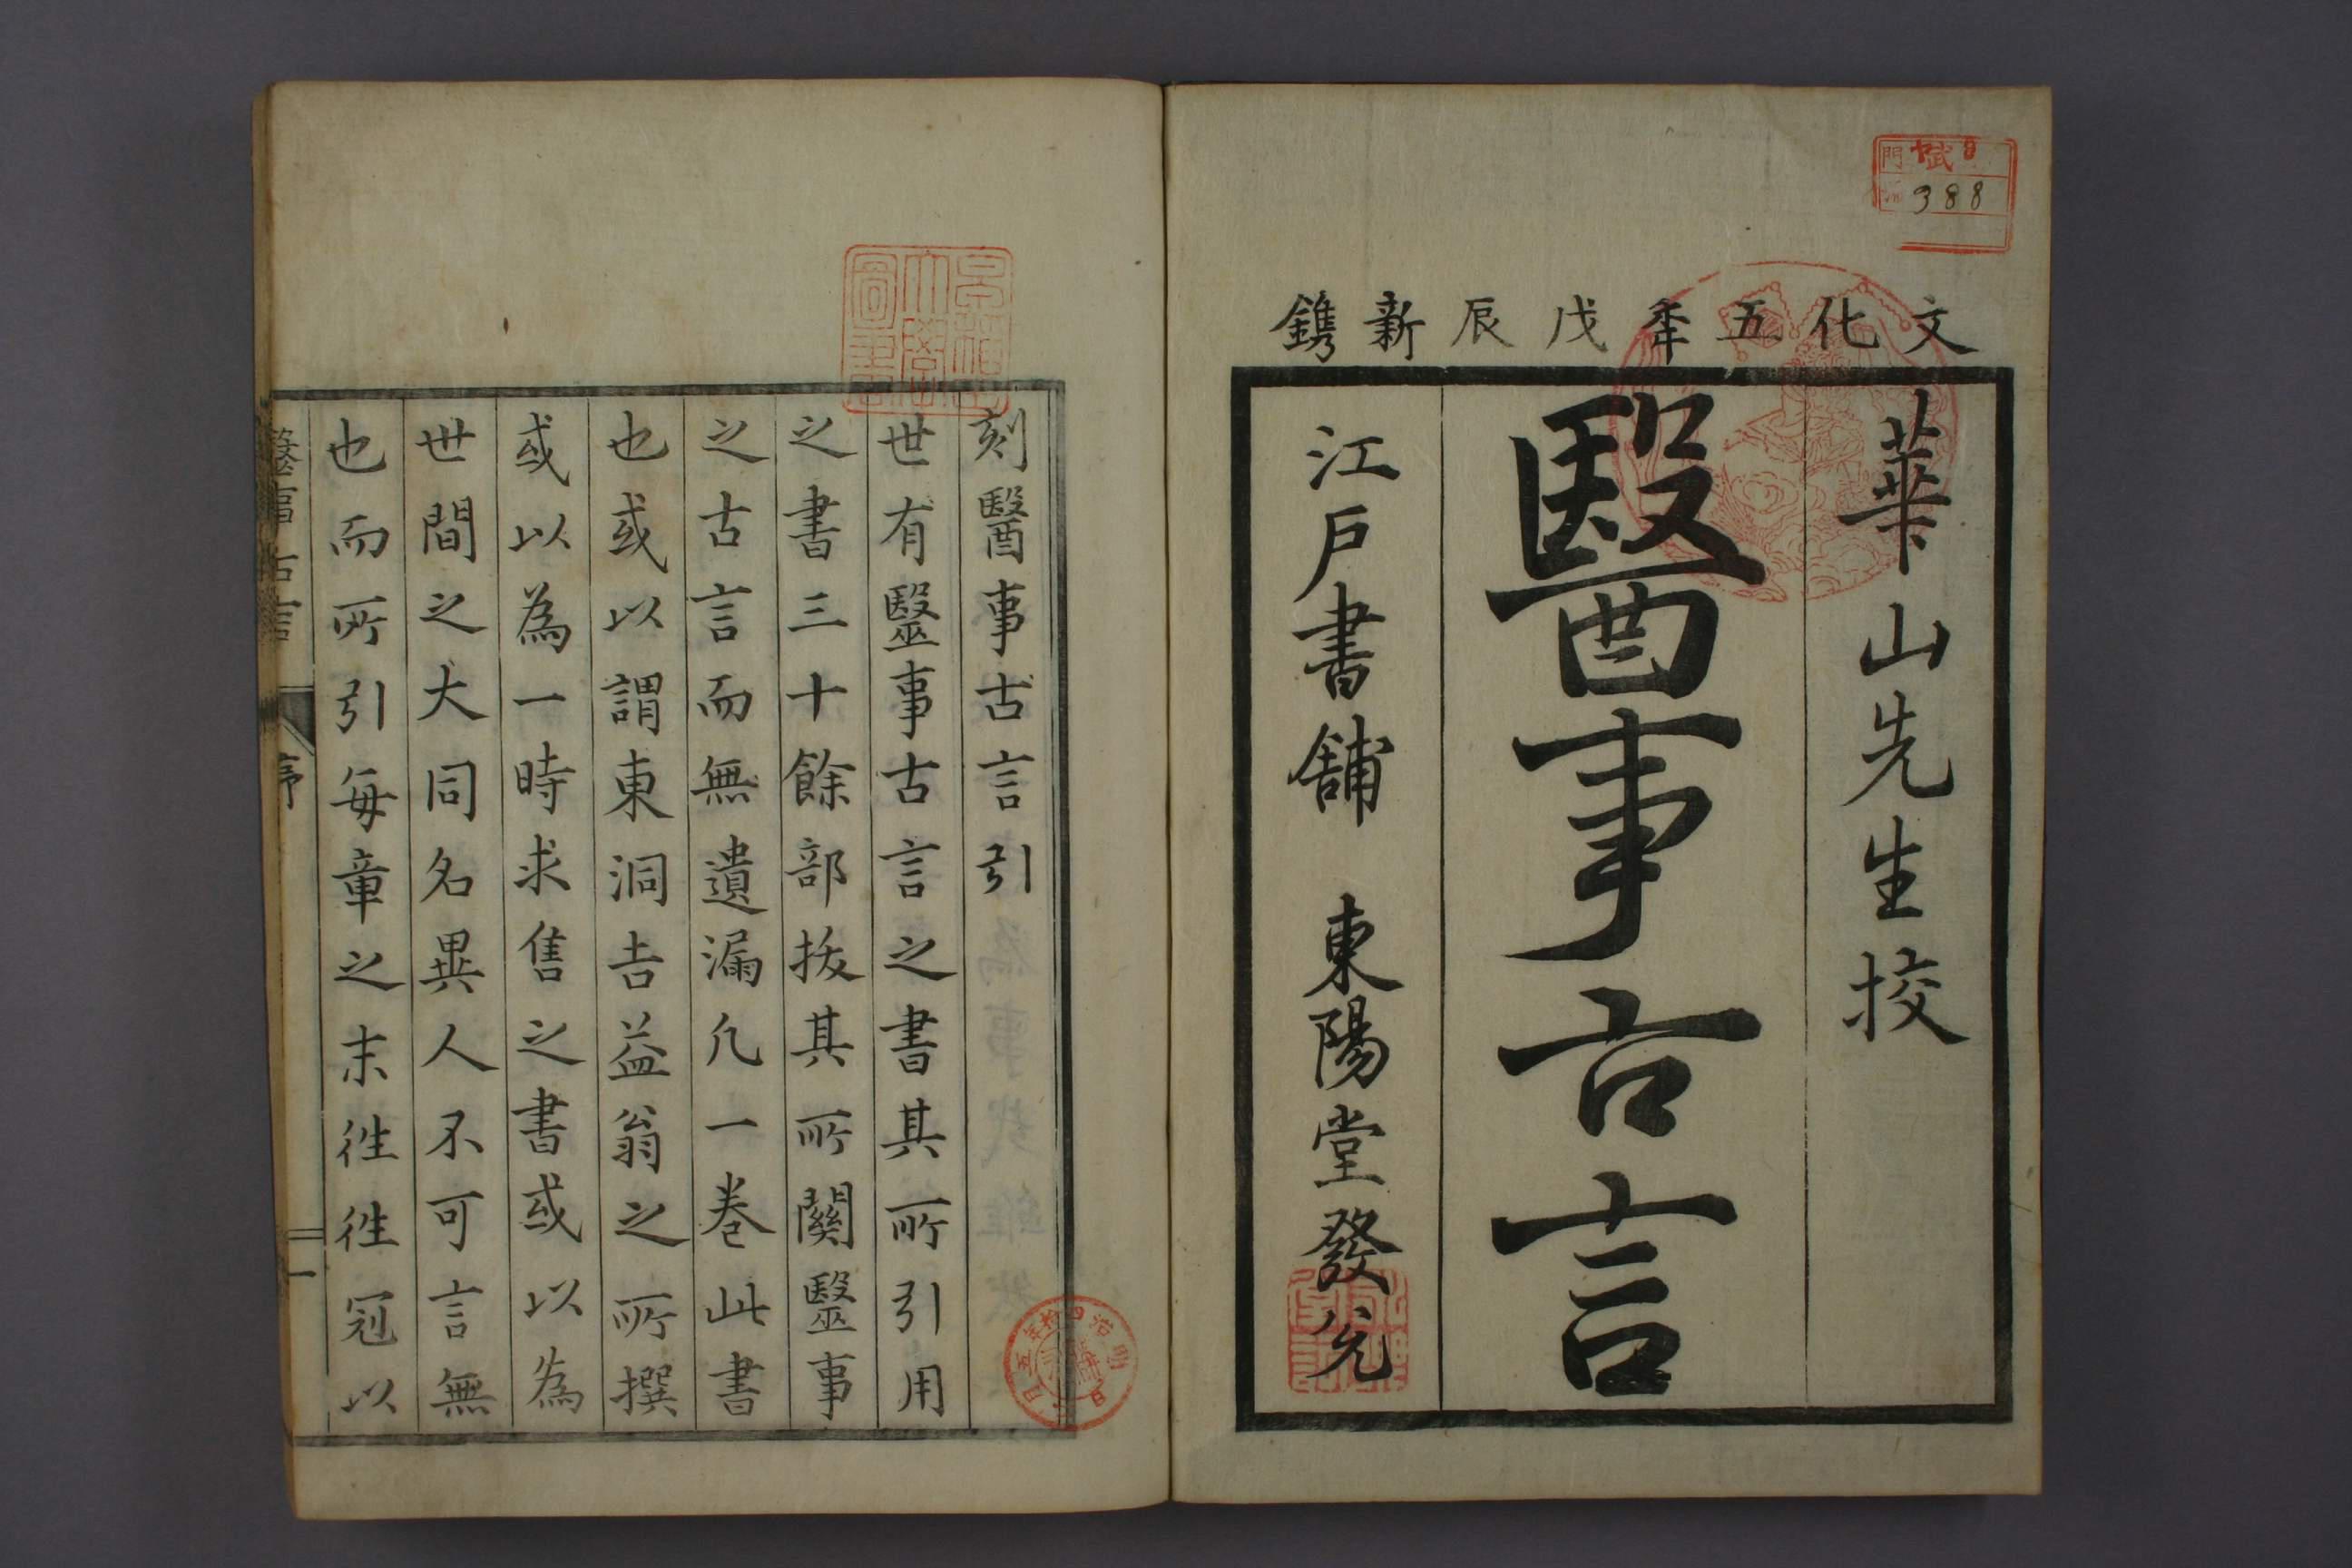 文化五年戊辰新鐫
華山先生挍
醫事古言
江戶書舖　東陽堂發兌
388
刻醫事古言引
世有毉事古言之書其所引用
之書三十餘部拔其所關毉事
之古言而無遺漏凡一卷此書
也或以謂東洞吉益翁之所撰
或以為一時求售之書或以為
世間之大同名異人不可言無
也而所引每章之末徃徃冠以
醫事古言
序
一